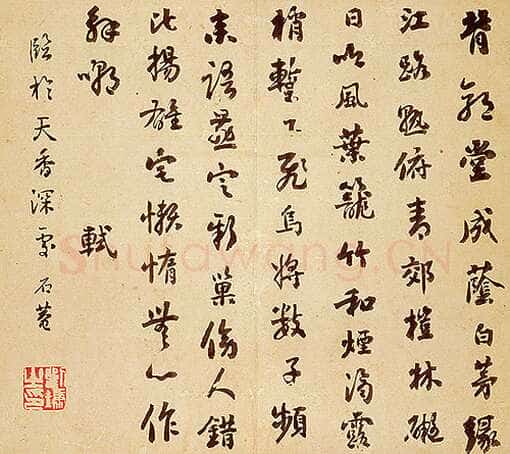 背郭堂成蔭白茅緣
江路熟俯青郊榿林礙
日吟風葉籠竹和煙滴露
梢蹔下飛烏將數子頻
来語燕定新巢傍人錯
比揚雄宅懶惰無心作
解嘲 軾
臨於天香深處 石菴
劉墉之印
Shufawang.CN